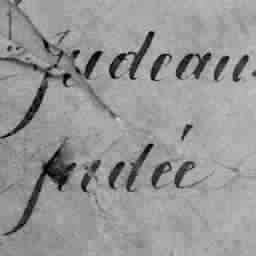 Judeau
Judée